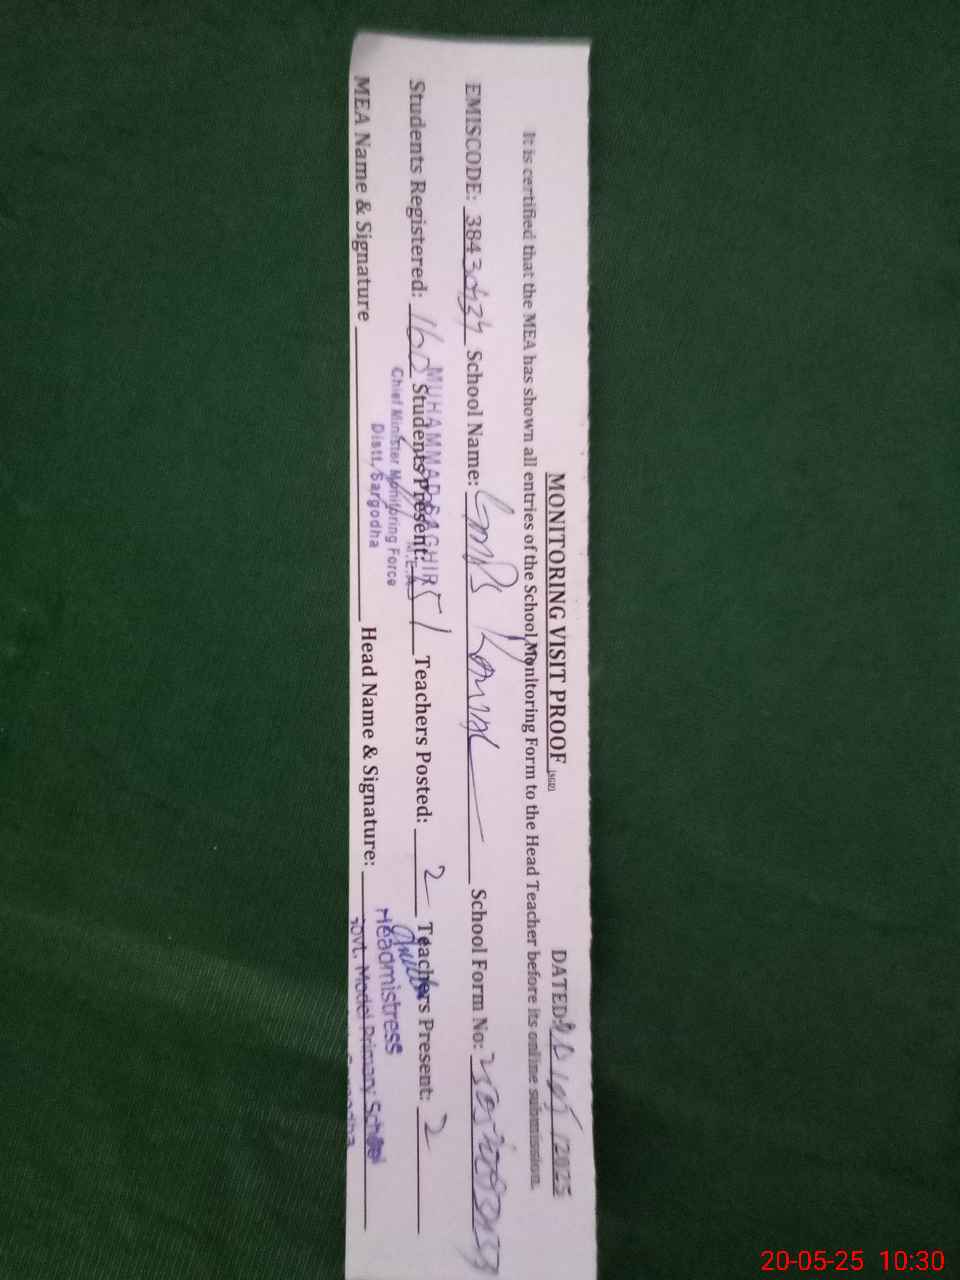 MONITORING VISIT PROOF (SGD) DATED: 20/05/2025
It is certified that the MEA has shown all entries of the School Monitoring Form to the Head Teacher before its online submission.
EMISCODE: 3843 School Name: GMPS School Form No:
Students Registered: 160 Students Present: 51 Teachers Posted: 2 Teachers Present: 2
MUHAMMAD SAGHIR
M.E.A
Chief Minister Monitoring Force
Distt. Sargodha
Headmistress
Govt. Model Primary School
MEA Name & Signature Head Name & Signature:
20-05-25 10:30